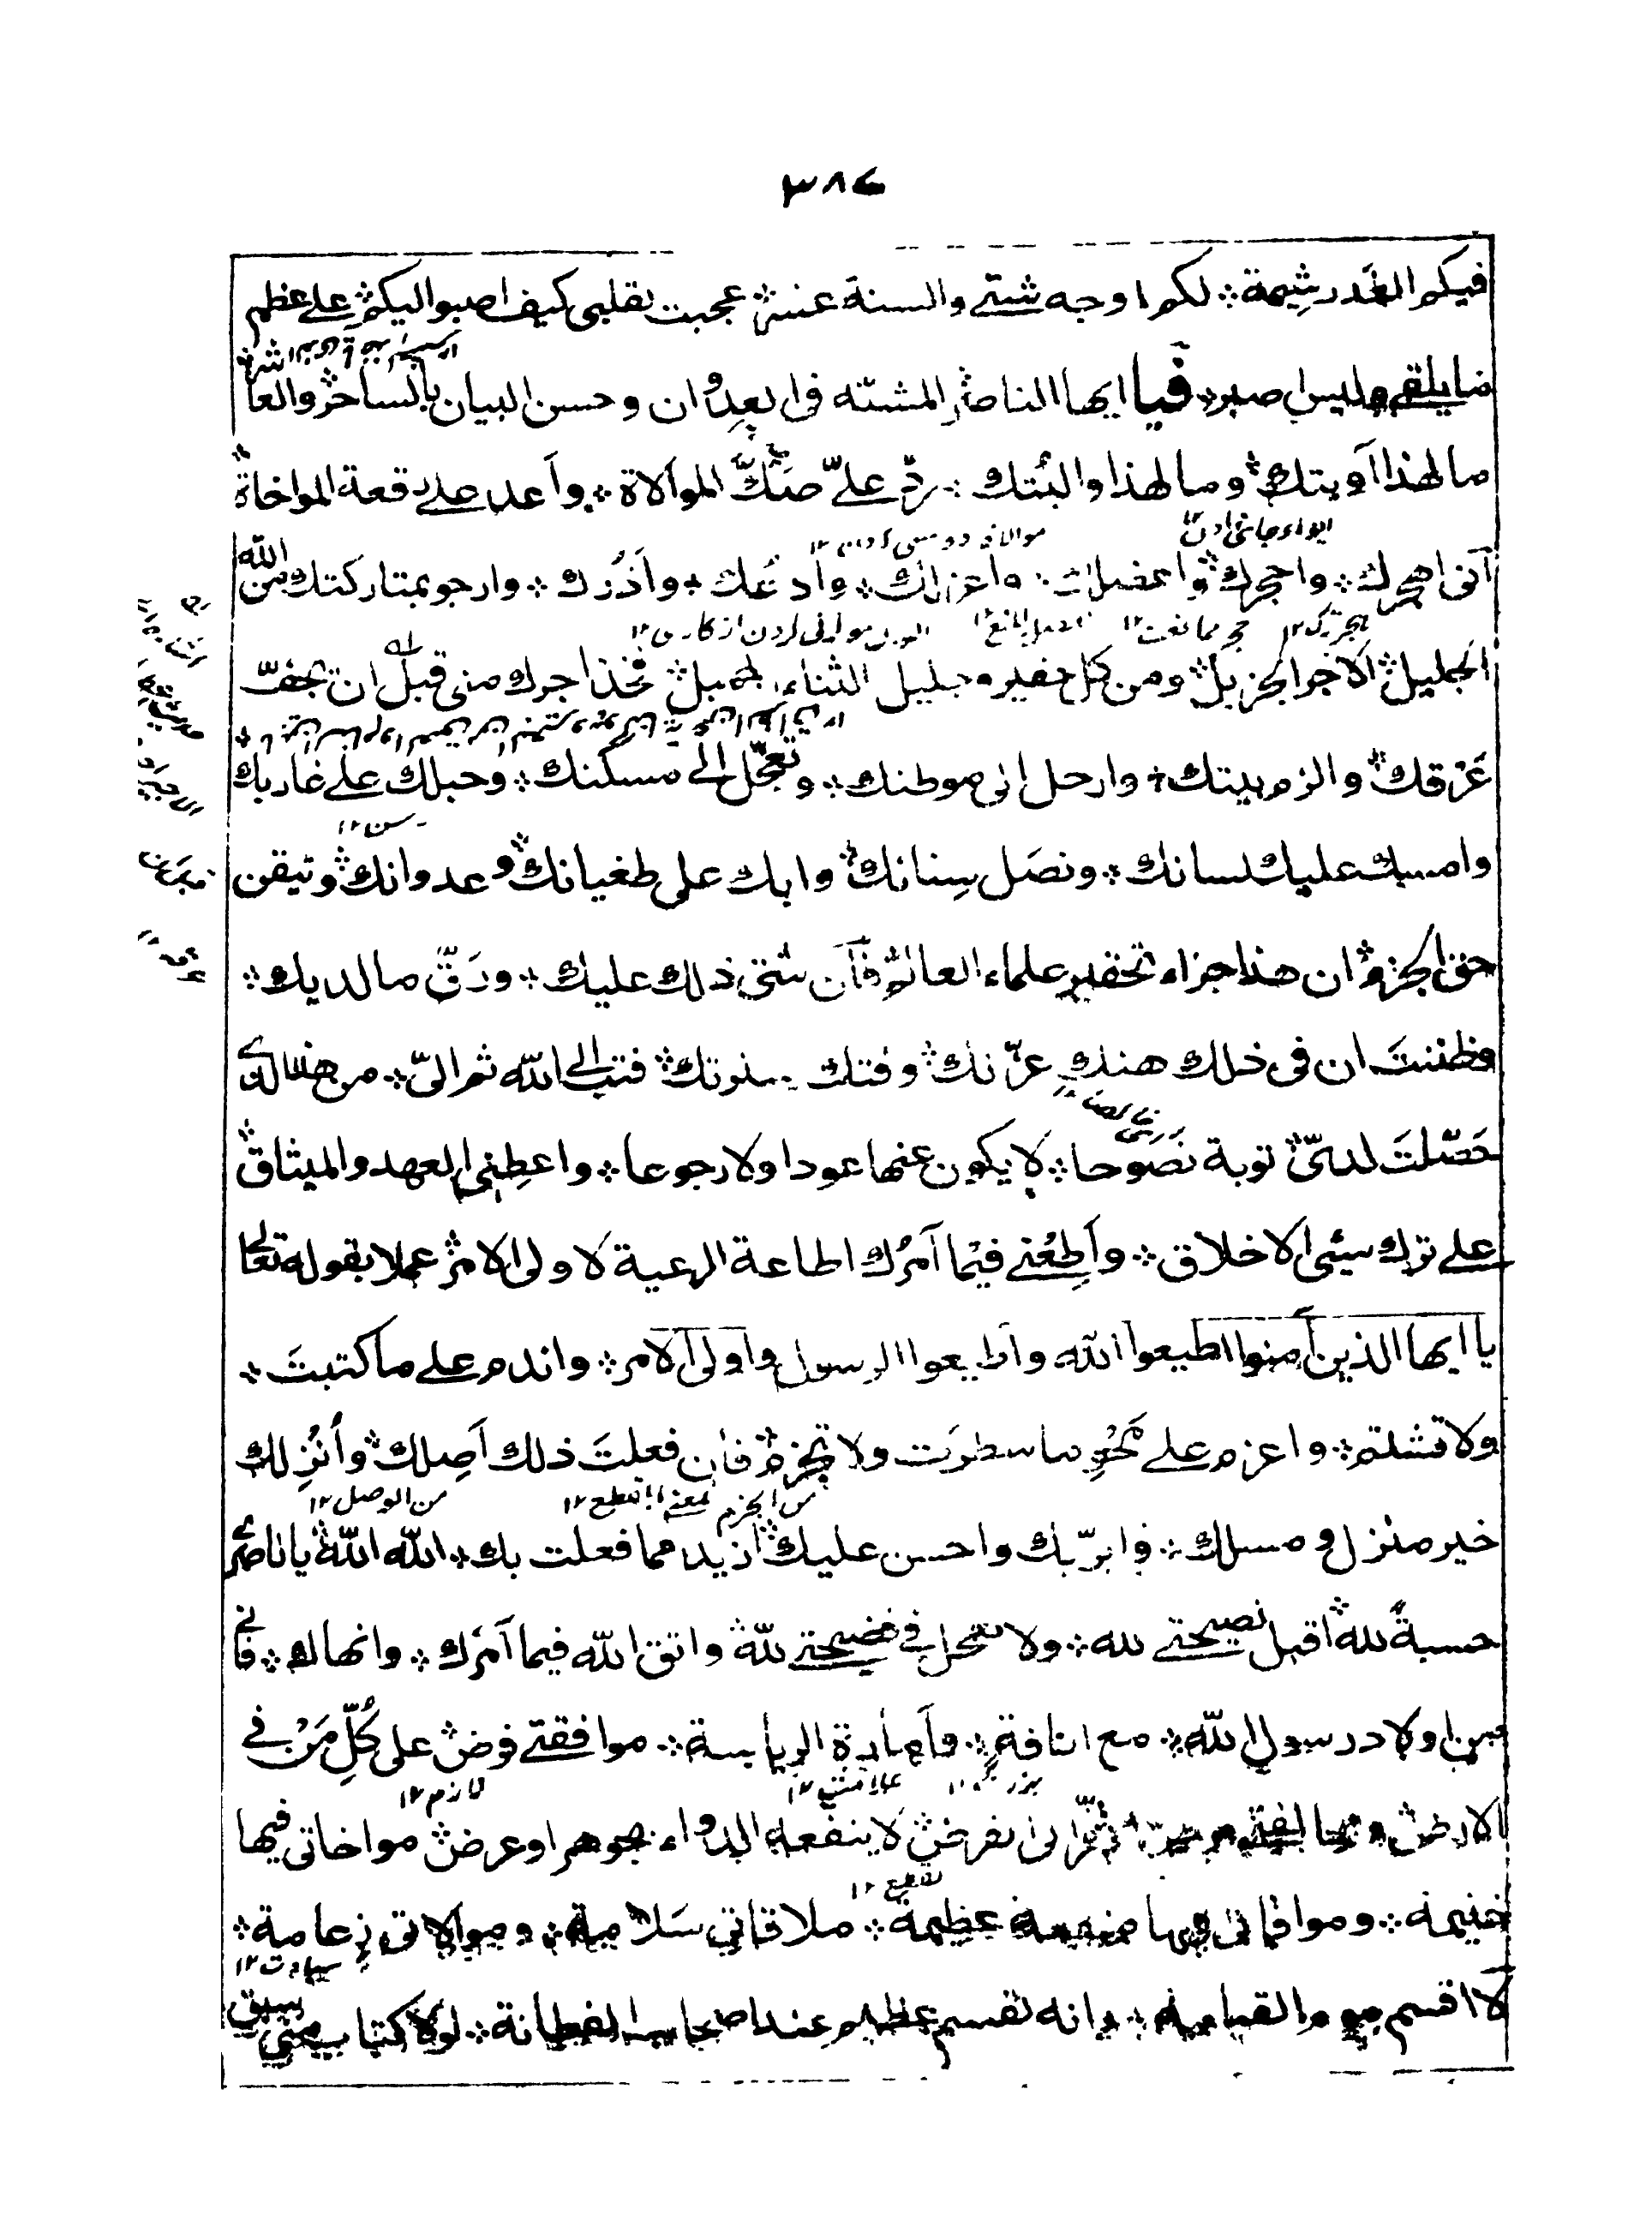 ٣٨٧
فيكم الغدر شيمة ؞ لكم اوجه شتى والسنة عشر ؞ عجبت لقلبي كيف اصبو اليكم ؞ على عظم
ما يلقى وليس صبر ؞ فيا ايها الناصر المشبه في العدوان وحسن البيان بالساحر والعا
ما لهذا آويتك ؞ وما لهذا والبتك ؞ ردّ علىّ صكّ الموالاة ؞ واعد على رقعة المواخاة ؞
ايواء جائ دادن ١٢ موالاة دوستى كردن ١٢
آنى اهجرك ؞ واحجرك ؞ واعضلك ؞ واعزلك ؞ وادعك ؞ واذرك ؞ وارجو بمتاركتك من الله
هجر ترك ١٢ حجر ممانعت ١٢
الجليل ؞ الاجر الجزيل ؞ ومن كل حقير وجليل الثناء الجميل ؞ فخذ اجرك منى قبل ان يجفّ
عرقك ؞ والزم بيتك ؞ وارحل الى موطنك ؞ وتعجّل الى مسكنك ؞ وحبلك على غاربك
رسن ١٢
وامسك عليك لسانك ؞ ونصل سنانك ؞ وابك على طغيانك ؞ وعدوانك ؞ وتيقن
حق الجزم ؞ ان هذا جزاء تحقير علماء العالم ؞ فان شق ذلك عليك ؞ ورقّ مالديك ؞
وظننت ان فى ذلك هتك عزتك ؞ وفتك سلوتك ؞ فتب الى الله ثم الىّ ؞ من هذا الذى
حصّلت لدىّ ؞ توبة نصوحا ؞ لا يكون عنها عودا ولا رجوعا ؞ واعطنى العهد والميثاق ؞
على ترك سيئ الاخلاق ؞ واطعنى فيما آمرك اطاعة الرعية لاولى الامر ؞ عملا بقوله تعالى
يا ايها الذين آمنوا اطيعوا الله واطيعوا الرسول واولى الامر ؞ واندم على ما كتبت ؞
ولا تشلتم ؞ واعزم على محو ما سطرت ولا تجزم ؞ فان فعلت ذلك اصلك ؞ وانزلك
من الجزم بمعنى القطع ١٢ من الوصل ١٢
خير منزل ومسلك ؞ وابرّ بك واحسن عليك ؞ ازيد مما فعلت بك ؞ الله الله ؞ يا ناصرى
حسبة لله ؞ اقبل نصيحتى لله ؞ ولا تعجل فى فضيحتى لله ؞ واتق الله فيما آمرك ؞ وانهاك ؞ فانى
من اولاد رسول الله ؞ مع انافة ؞ وامارة الرياسة ؞ موافقتى فرض على كلّ من فى
بزرگى ١٢ علامت ١٢ لازم ١٢
الارض ؞ لا ينفعه الدواء بجوهر او عرض ؞ مواخاتى فيها
قطع ١٢
غنيمة ؞ وموافاتى فيها منفعة عظيمة ؞ ملاقاتى سلامية ؞ وموالاتى زعامة ؞
سيادت ١٢
لا اقسم بيوم القيامة ؞ وانه لقسم عظيم عند اصحاب الفطانة ؞ لولا كتاب منى سبق